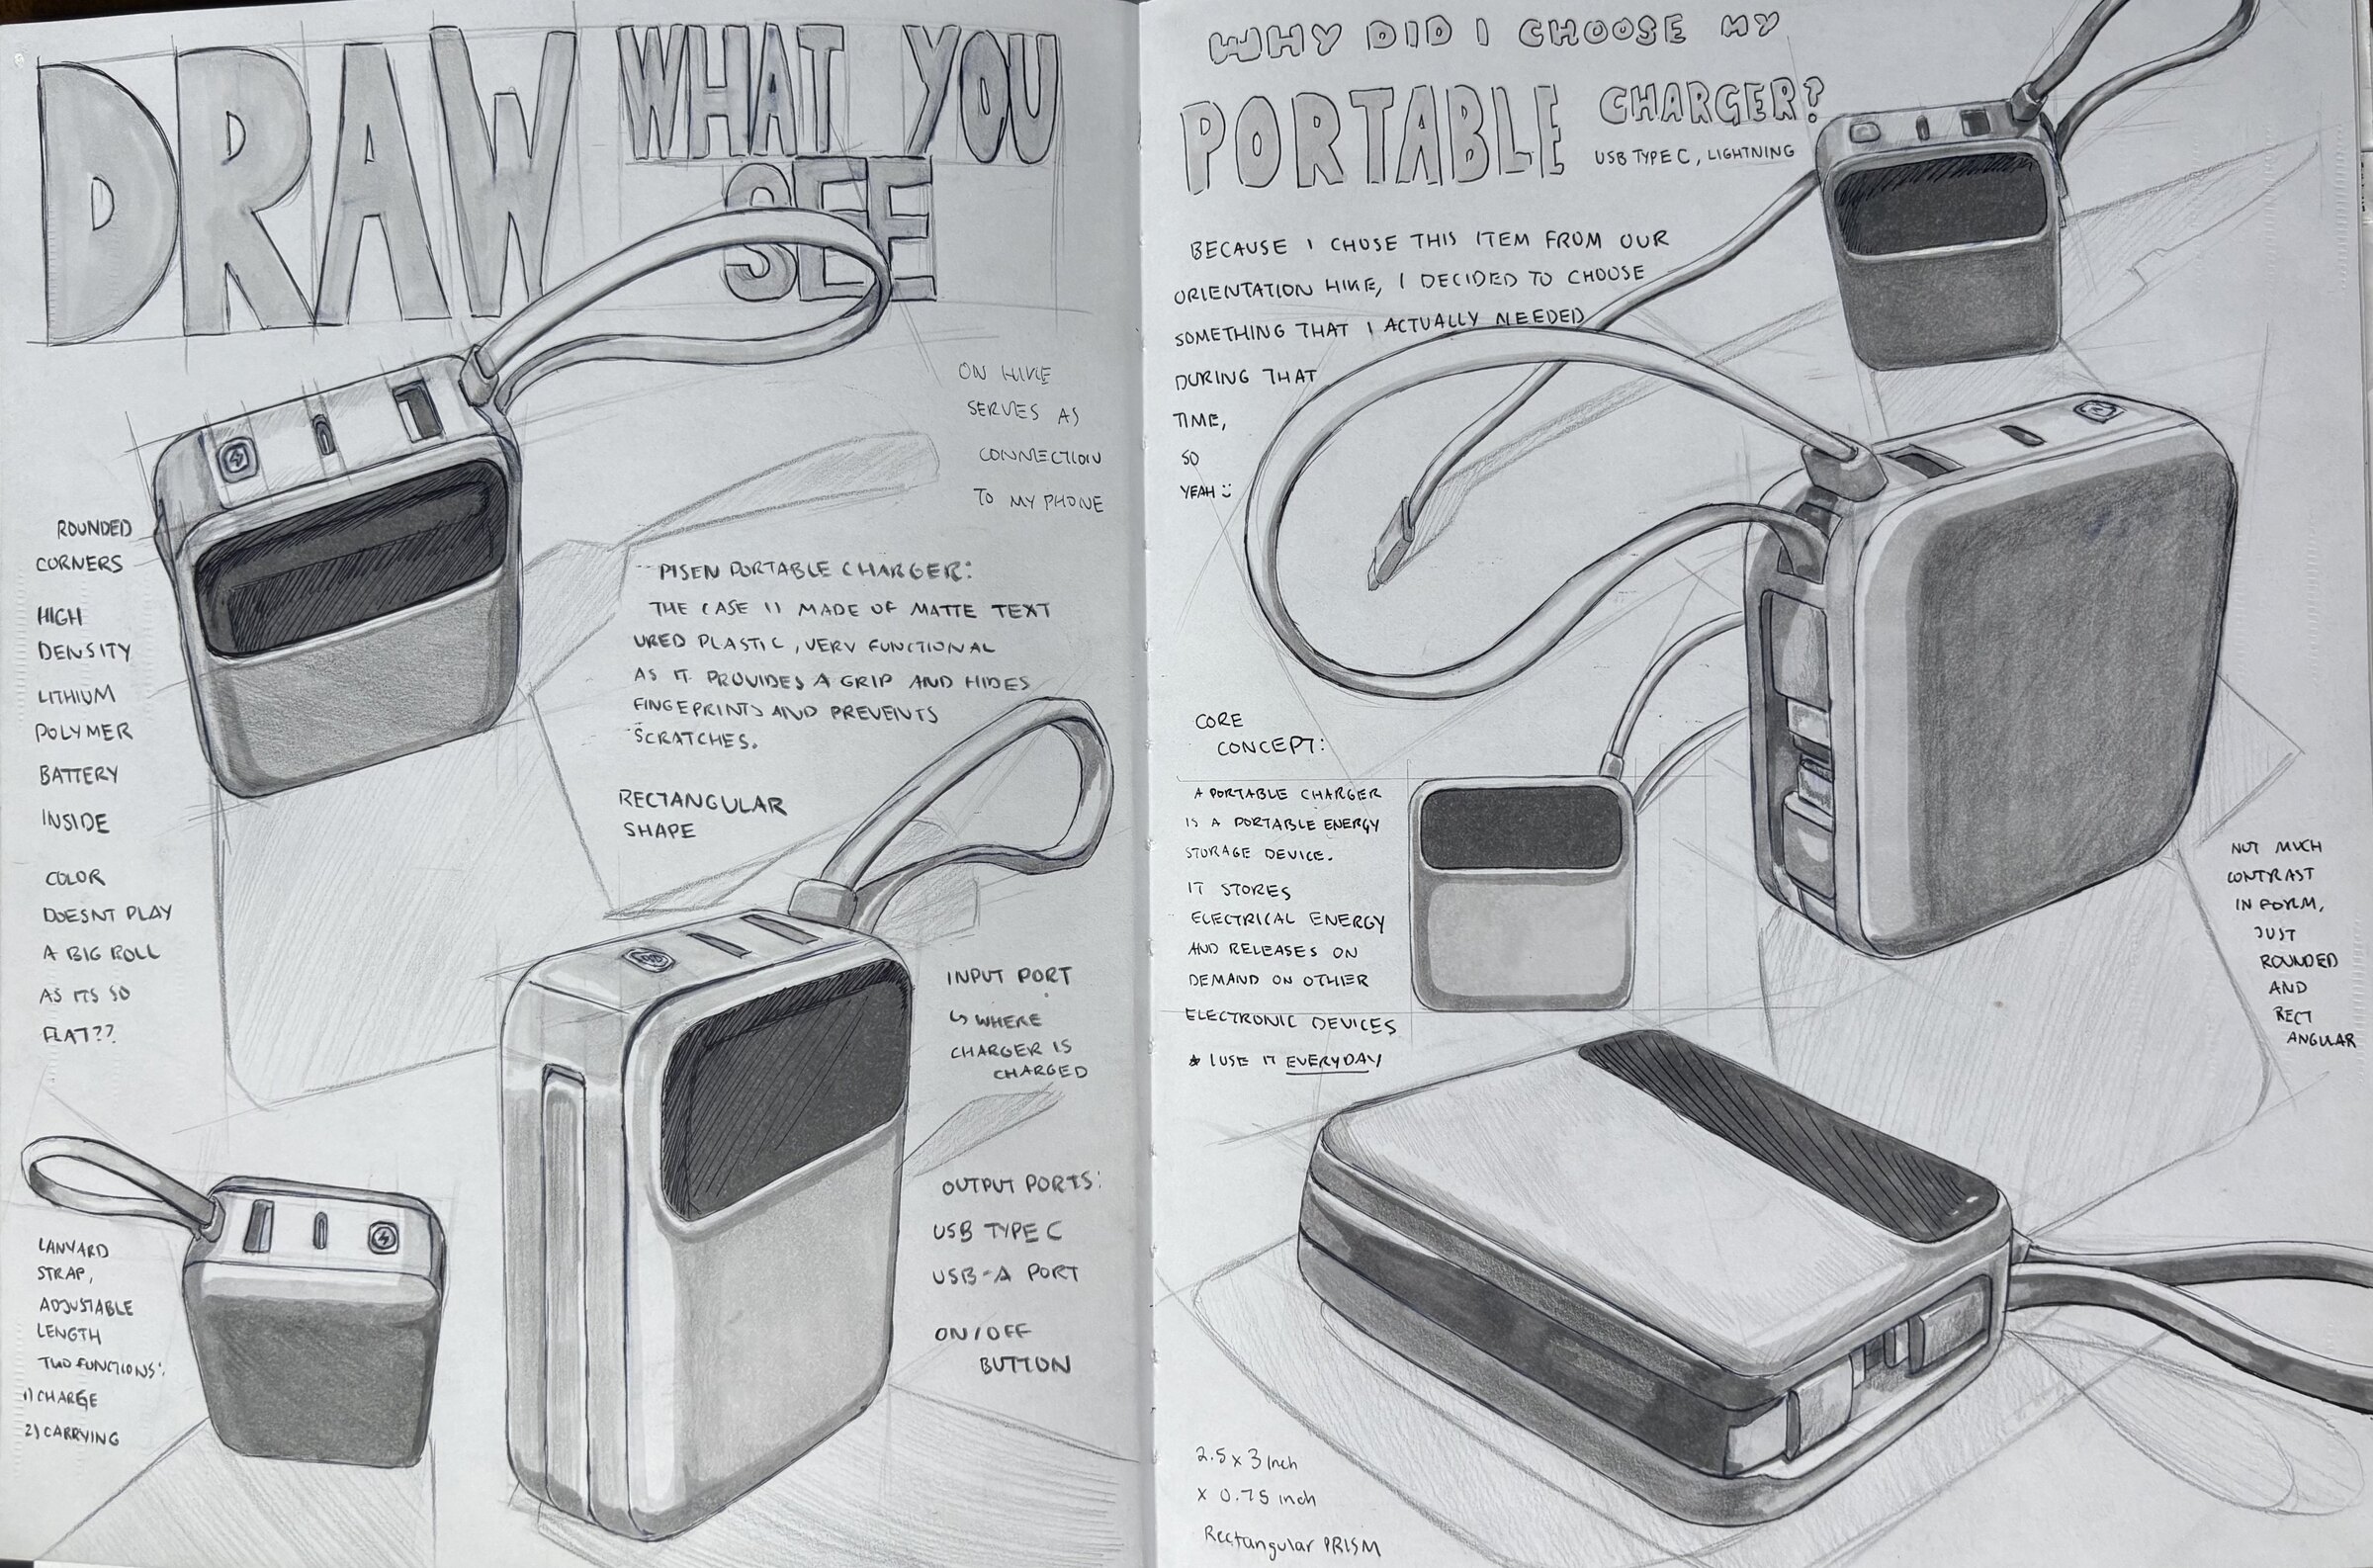 DRAW WHAT YOU
SEE
ON HIKE
SERVES AS
CONNECTION
TO MY PHONE
ROUNDED
CORNERS
HIGH
DENSITY
LITHIUM
POLYMER
BATTERY
INSIDE
COLOR
DOESNT PLAY
A BIG ROLL
AS ITS SO
FLAT??
PISEN PORTABLE CHARGER:
THE CASE IS MADE OF MATTE TEXT
URED PLASTIC, VERY FUNCTIONAL
AS IT PROVIDES A GRIP AND HIDES
FINGEPRINTS AND PREVENTS
SCRATCHES.
RECTANGULAR
SHAPE
INPUT PORT
↳ WHERE
CHARGER IS
CHARGED
OUTPUT PORTS:
USB TYPE C
USB-A PORT
ON/OFF
BUTTON
LANYARD
STRAP,
ADJUSTABLE
LENGTH
TWO FUNCTIONS:
1) CHARGE
2) CARRYING
WHY DID I CHOOSE MY
PORTABLE CHARGER?
USB TYPE C, LIGHTNING
BECAUSE I CHOSE THIS ITEM FROM OUR
ORIENTATION HIKE, I DECIDED TO CHOOSE
SOMETHING THAT I ACTUALLY NEEDED
DURING THAT
TIME,
SO
YEAH :)
CORE
CONCEPT:
A PORTABLE CHARGER
IS A PORTABLE ENERGY
STORAGE DEVICE.
IT STORES
ELECTRICAL ENERGY
AND RELEASES ON
DEMAND ON OTHER
ELECTRONIC DEVICES
* I USE IT EVERYDAY
NOT MUCH
CONTRAST
IN FORM,
JUST
ROUNDED
AND
RECT
ANGULAR
2.5 x 3 inch
x 0.75 inch
Rectangular PRISM